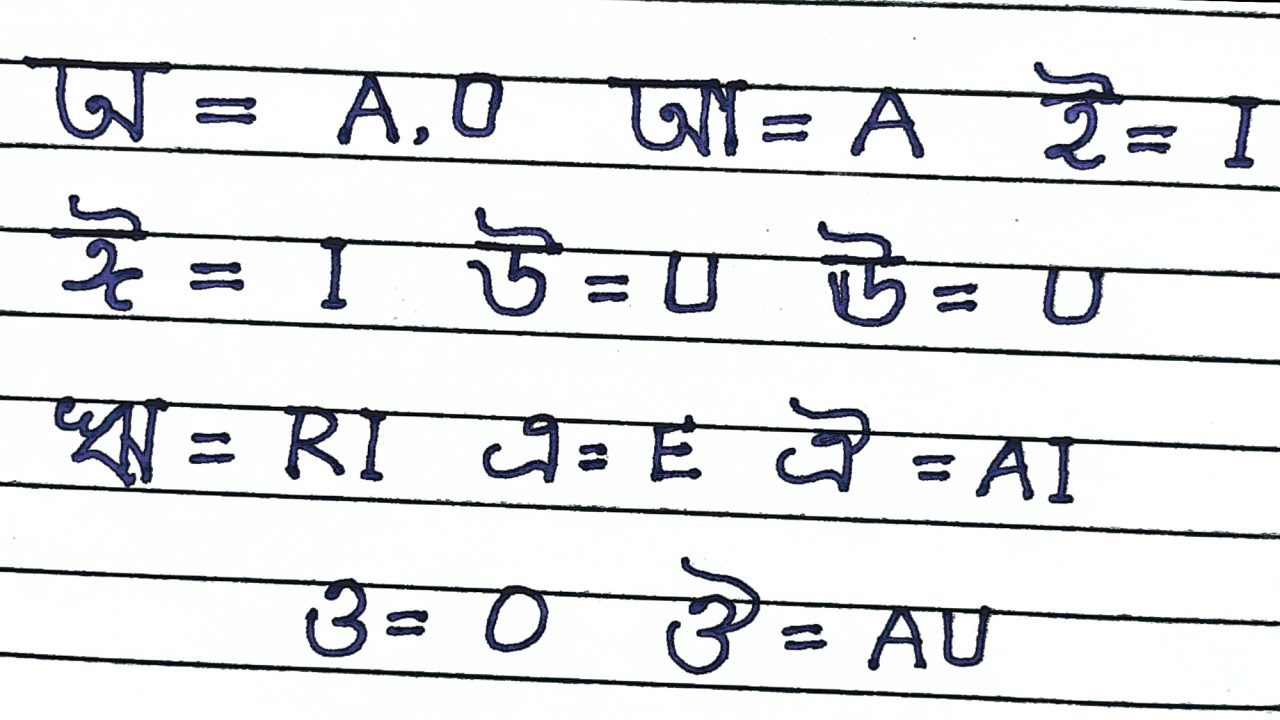 অ = A, O আ = A ই = I
ঈ = I উ = U ঊ = U
ঋ = RI এ = E ঐ = AI
ও = O ঔ = AU